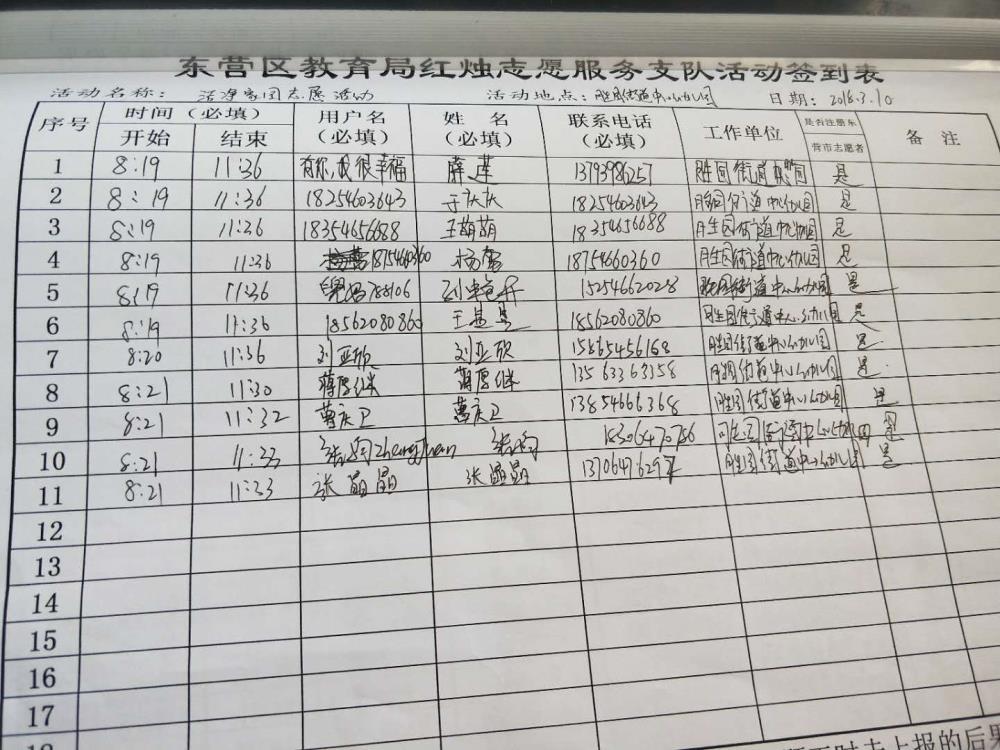 东营区教育局红烛志愿服务支队活动签到表
活动名称： 洁净家园志愿活动 活动地点：胜园街道中心幼儿园 日期：2018.3.10
序号 时间（必填） 开始 结束 用户名（必填） 姓名（必填） 联系电话（必填） 工作单位 是否注册东营市志愿者 备注
1 8:19 11:36 有你,我很幸福 薛莲 胜园街道 是
2 8:19 11:36 18254603643 于庆庆 18254603643 胜园街道中心幼儿园 是
3 8:19 11:36 18354656688 王萌萌 18354656688 胜园街道中心幼儿园 是
4 8:19 11:36 杨蕾 18754660360 胜园街道中心幼儿园 是
5 8:19 11:36 15254662028 胜园街道中心幼儿园 是
6 8:19 11:36 18562080860 王显显 18562080860 胜园街道中心幼儿园 是
7 8:20 11:36 刘亚欣 刘亚欣 15865456168 胜园街道中心幼儿园 是
8 8:21 11:30 蒋厚继 蒋厚继 13563363358 胜园街道中心幼儿园 是
9 8:21 11:32 万庆卫 万庆卫 13854666368 胜园街道中心幼儿园 是
10 8:21 11:33 18306470786 胜园街道中心幼儿园 是
11 8:21 11:33 张晶晶 张晶晶 胜园街道中心幼儿园 是
12
13
14
15
16
17